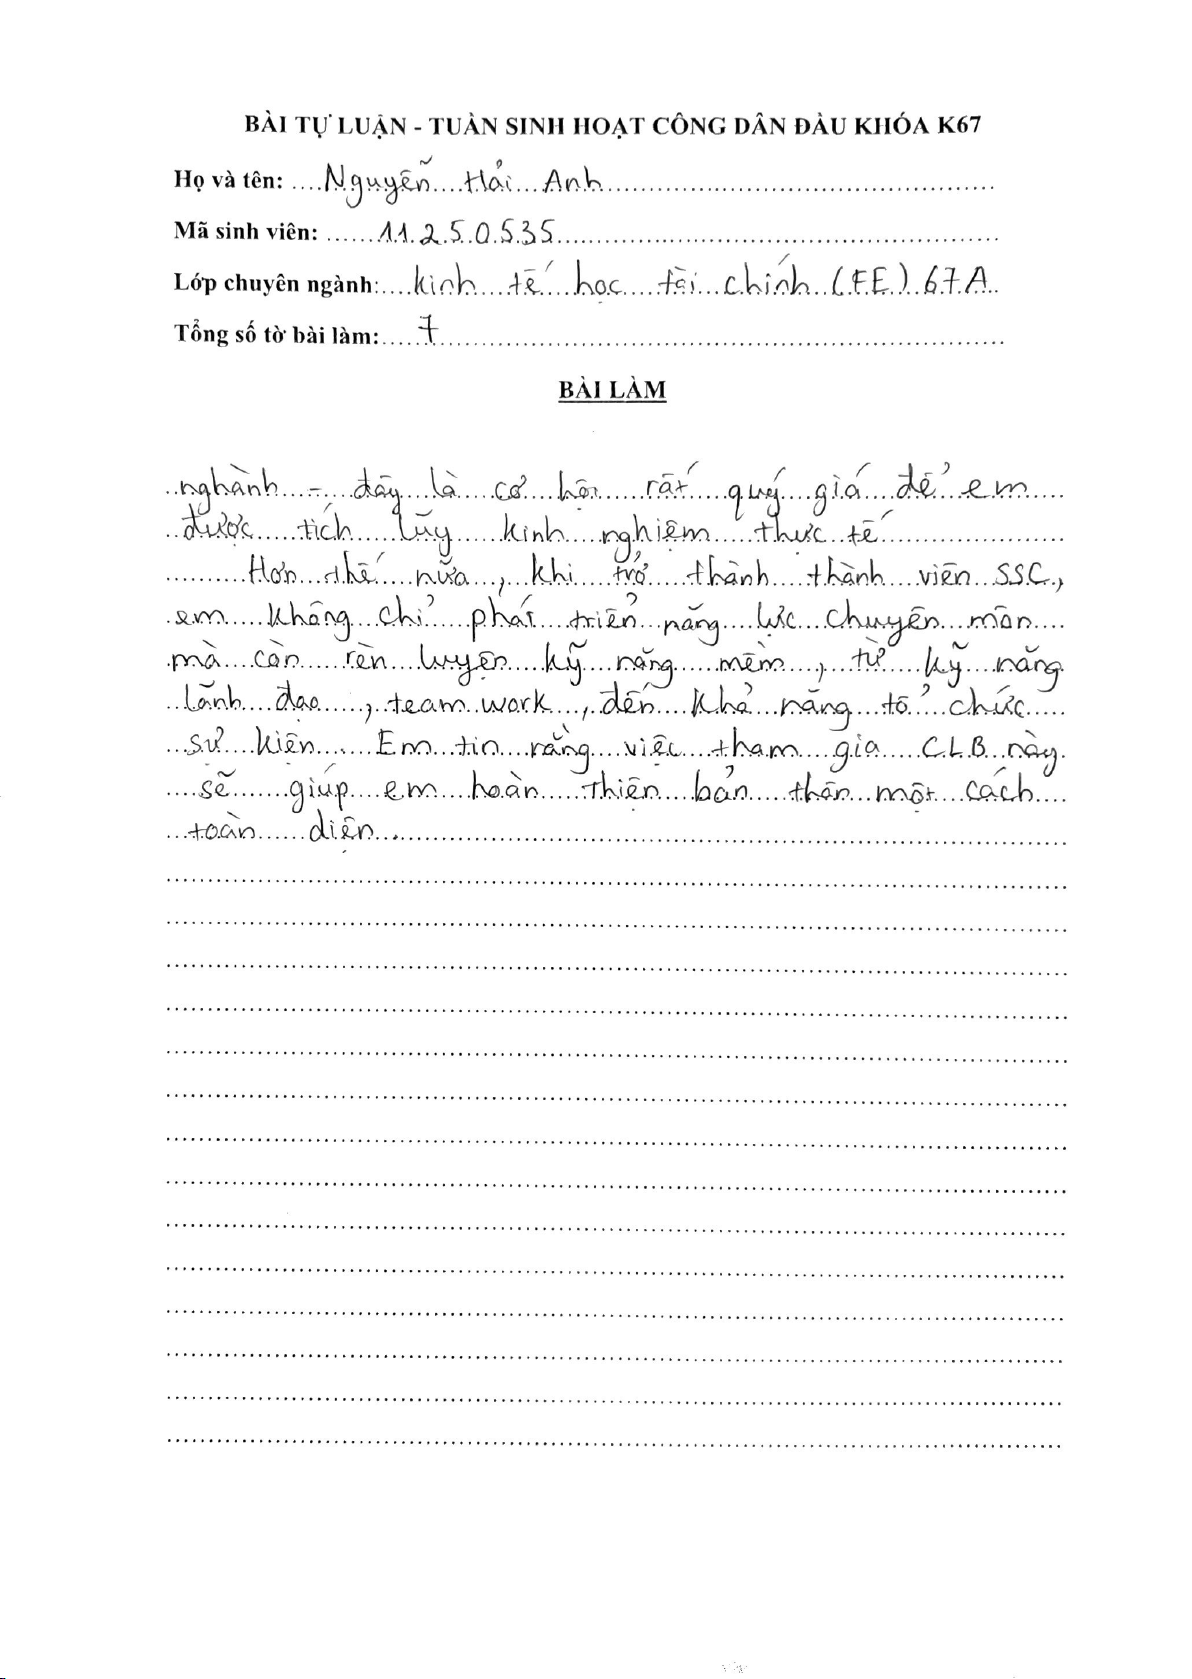 BÀI TỰ LUẬN - TUẦN SINH HOẠT CÔNG DÂN ĐẦU KHÓA K67
Họ và tên: Nguyễn Hải Anh
Mã sinh viên: 11250535
Lớp chuyên ngành: kinh tế học tài chính (FE) 67A
Tổng số tờ bài làm: 7
BÀI LÀM
nghành - đây là cơ hội rất quý giá để em
được tích lũy kinh nghiệm thực tế
Hơn thế nữa, khi trở thành thành viên SSC,
em không chỉ phát triển năng lực chuyên môn
mà còn rèn luyện kỹ năng mềm, từ kỹ năng
lãnh đạo, team work, đến khả năng tổ chức
sự kiện. Em tin rằng việc tham gia CLB này
sẽ giúp em hoàn thiện bản thân một cách
toàn diện.